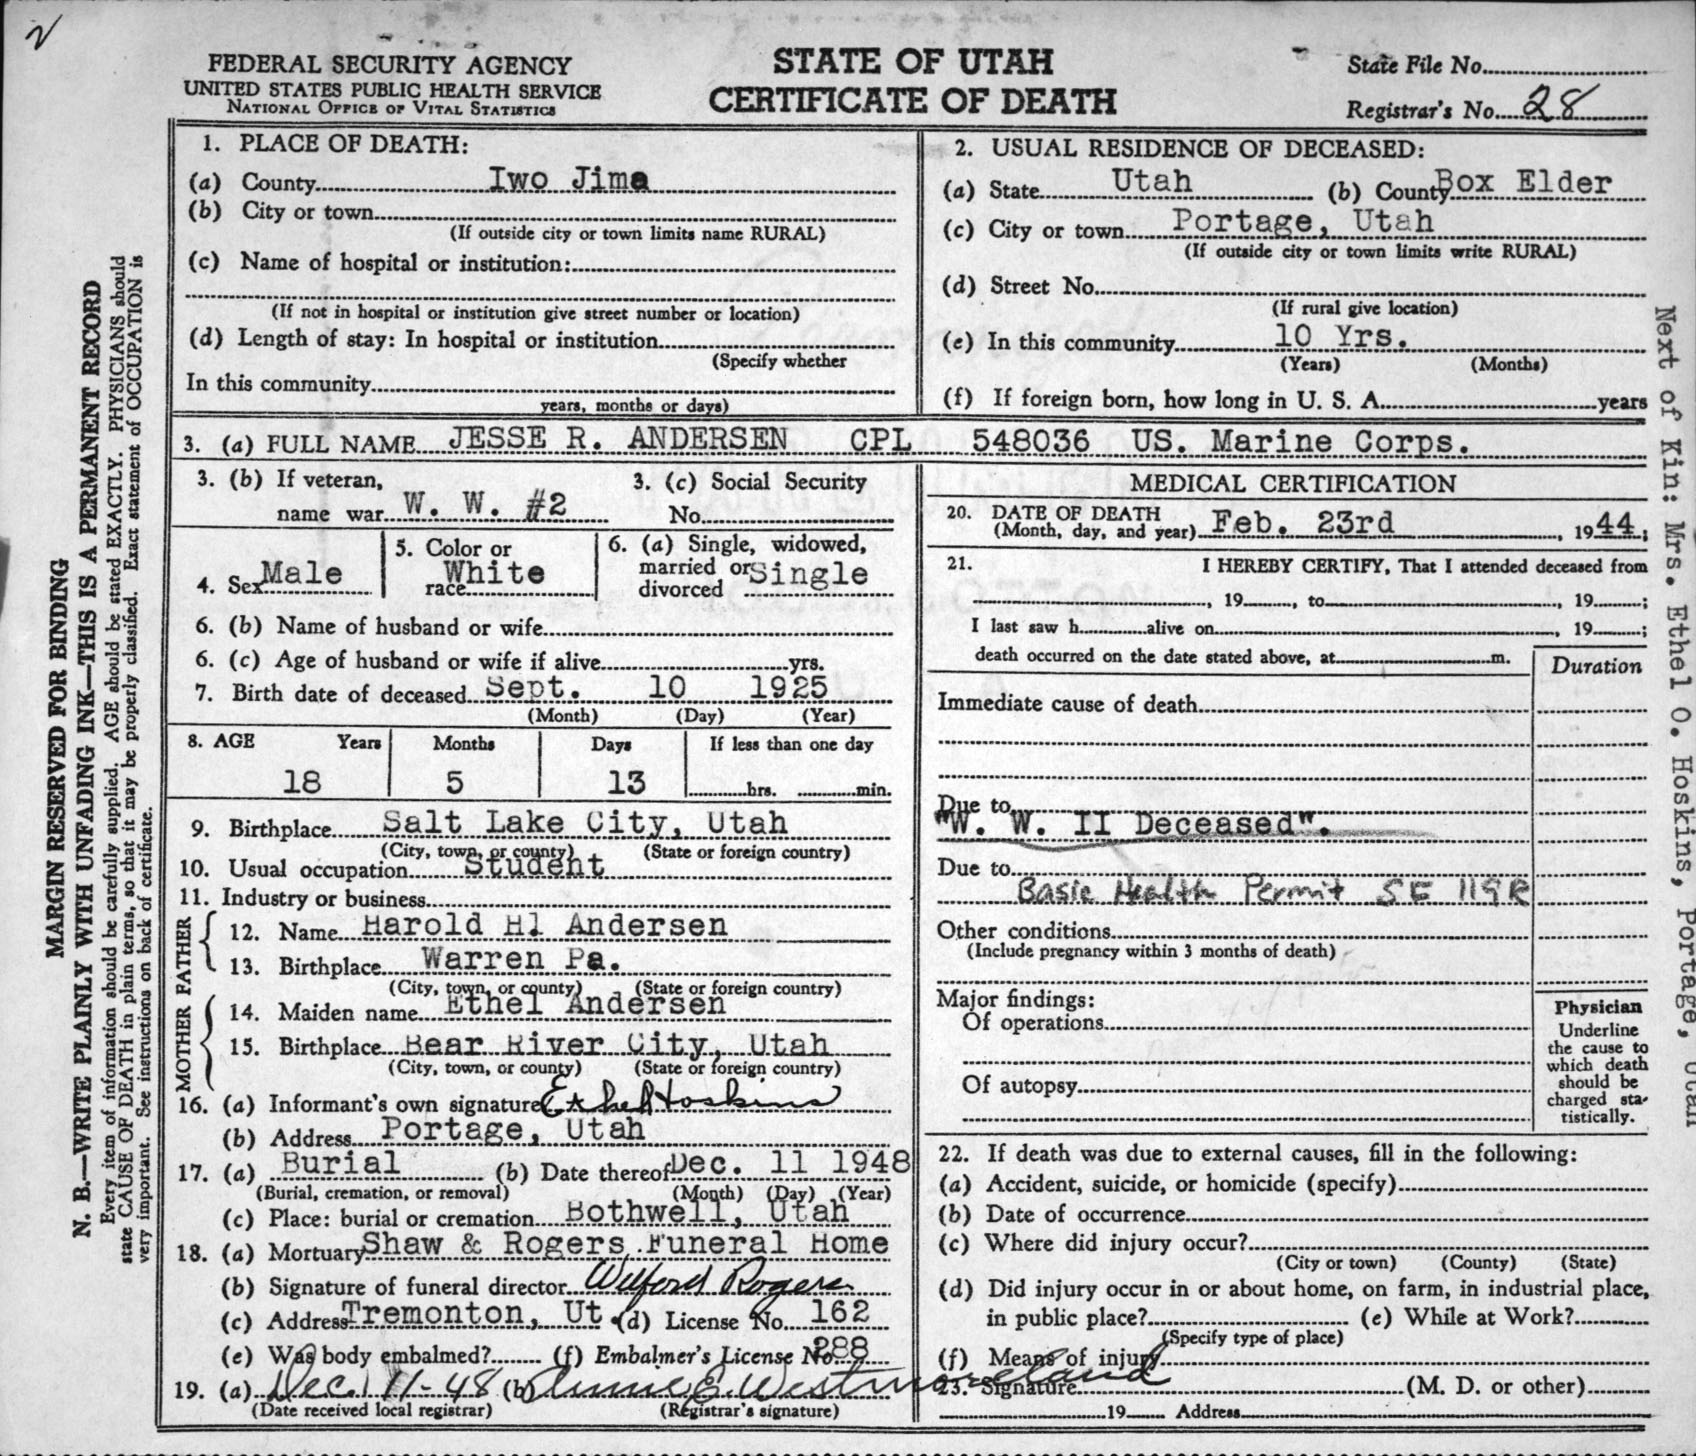 2
FEDERAL SECURITY AGENCY
UNITED STATES PUBLIC HEALTH SERVICE
NATIONAL OFFICE OF VITAL STATISTICS
STATE OF UTAH
CERTIFICATE OF DEATH
State File No.
Registrar's No. 28
MARGIN RESERVED FOR BINDING
N. B.—WRITE PLAINLY WITH UNFADING INK—THIS IS A PERMANENT RECORD
Every item of information should be carefully supplied. AGE should be stated EXACTLY. PHYSICIANS should
state CAUSE OF DEATH in plain terms, so that it may be properly classified. Exact statement of OCCUPATION is
very important. See instructions on back of certificate.
1. PLACE OF DEATH:
(a) County Iwo Jima
(b) City or town
(If outside city or town limits name RURAL)
(c) Name of hospital or institution:
(If not in hospital or institution give street number or location)
(d) Length of stay: In hospital or institution
(Specify whether
In this community
years, months or days)
2. USUAL RESIDENCE OF DECEASED:
(a) State Utah (b) County Box Elder
(c) City or town Portage, Utah
(If outside city or town limits write RURAL)
(d) Street No.
(If rural give location)
(e) In this community 10 Yrs.
(Years) (Months)
(f) If foreign born, how long in U. S. A. years
3. (a) FULL NAME JESSE R. ANDERSEN CPL 548036 US. Marine Corps.
3. (b) If veteran,
name war W. W. #2
3. (c) Social Security
No.
4. Sex Male
5. Color or
race White
6. (a) Single, widowed,
married or
divorced Single
6. (b) Name of husband or wife
6. (c) Age of husband or wife if alive yrs.
7. Birth date of deceased Sept. 10 1925
(Month) (Day) (Year)
8. AGE Years Months Days If less than one day
18 5 13 hrs. min.
9. Birthplace Salt Lake City, Utah
(City, town, or county) (State or foreign country)
10. Usual occupation Student
11. Industry or business
FATHER
12. Name Harold H. Andersen
13. Birthplace Warren Pa.
(City, town, or county) (State or foreign country)
MOTHER
14. Maiden name Ethel Andersen
15. Birthplace Bear River City, Utah
(City, town, or county) (State or foreign country)
16. (a) Informant's own signature Ethel Hoskins
(b) Address Portage, Utah
17. (a) Burial (b) Date thereof Dec. 11 1948
(Burial, cremation, or removal) (Month) (Day) (Year)
(c) Place: burial or cremation Bothwell, Utah
18. (a) Mortuary Shaw & Rogers Funeral Home
(b) Signature of funeral director Wilford Rogers
(c) Address Tremonton, Ut. (d) License No. 162
(e) Was body embalmed? (f) Embalmer's License No. 288
19. (a) Dec. 11-48 (b) Annie E. Westmoreland
(Date received local registrar) (Registrar's signature)
MEDICAL CERTIFICATION
20. DATE OF DEATH
(Month, day, and year) Feb. 23rd, 1944;
21. I HEREBY CERTIFY, That I attended deceased from
, 19 , to , 19 ;
I last saw h alive on , 19 ;
death occurred on the date stated above, at m.
Duration
Immediate cause of death
Due to
"W. W. II Deceased".
Due to
Basic Health Permit SE 119R
Other conditions
(Include pregnancy within 3 months of death)
Major findings:
Of operations
Of autopsy
Physician
Underline
the cause to
which death
should be
charged sta-
tistically.
22. If death was due to external causes, fill in the following:
(a) Accident, suicide, or homicide (specify)
(b) Date of occurrence
(c) Where did injury occur?
(City or town) (County) (State)
(d) Did injury occur in or about home, on farm, in industrial place,
in public place? (e) While at Work?
(Specify type of place)
(f) Means of injury
23. Signature (M. D. or other)
19 Address
Next of Kin: Mrs. Ethel O. Hoskins, Portage, Utah